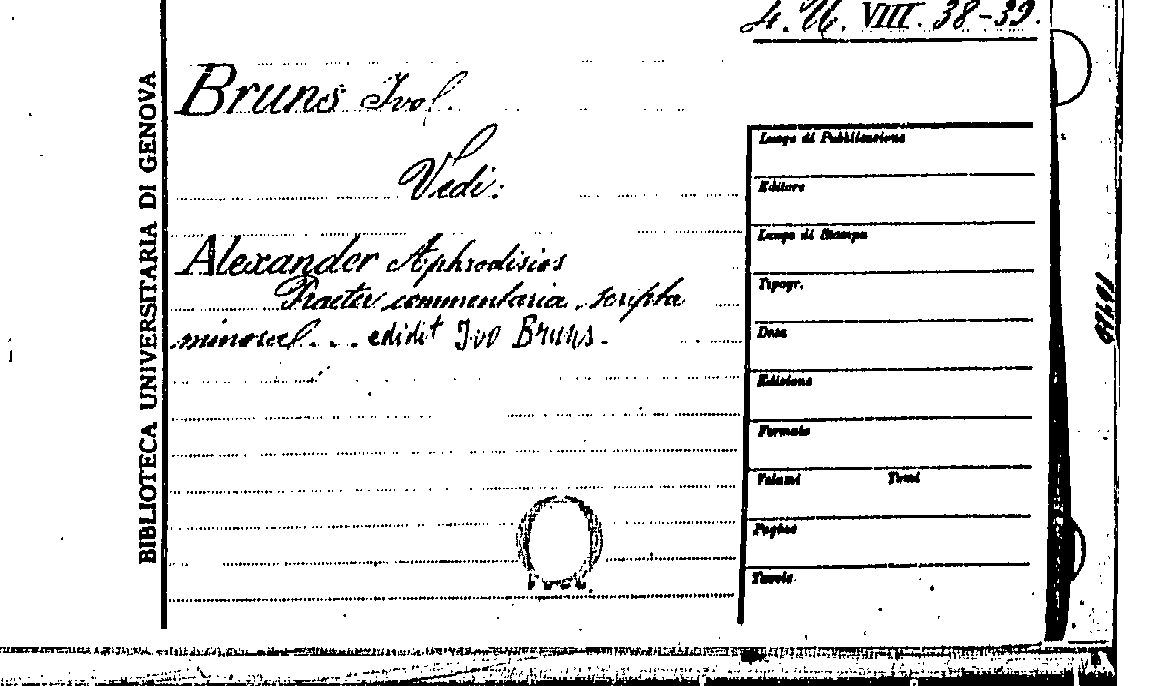 4. U. VIII. 38-39.
BIBLIOTECA UNIVERSITARIA DI GENOVA
Bruns Ivo.
Vedi:
Alexander Aphrodisios
Praeter commentaria scripta
minora ... edidit Ivo Bruns.
Luogo di Pubblicazione
Editore
Luogo di Stampa
Tipogr.
Data
Edizione
Formato
Volumi Tomi
Pagine
Tavole